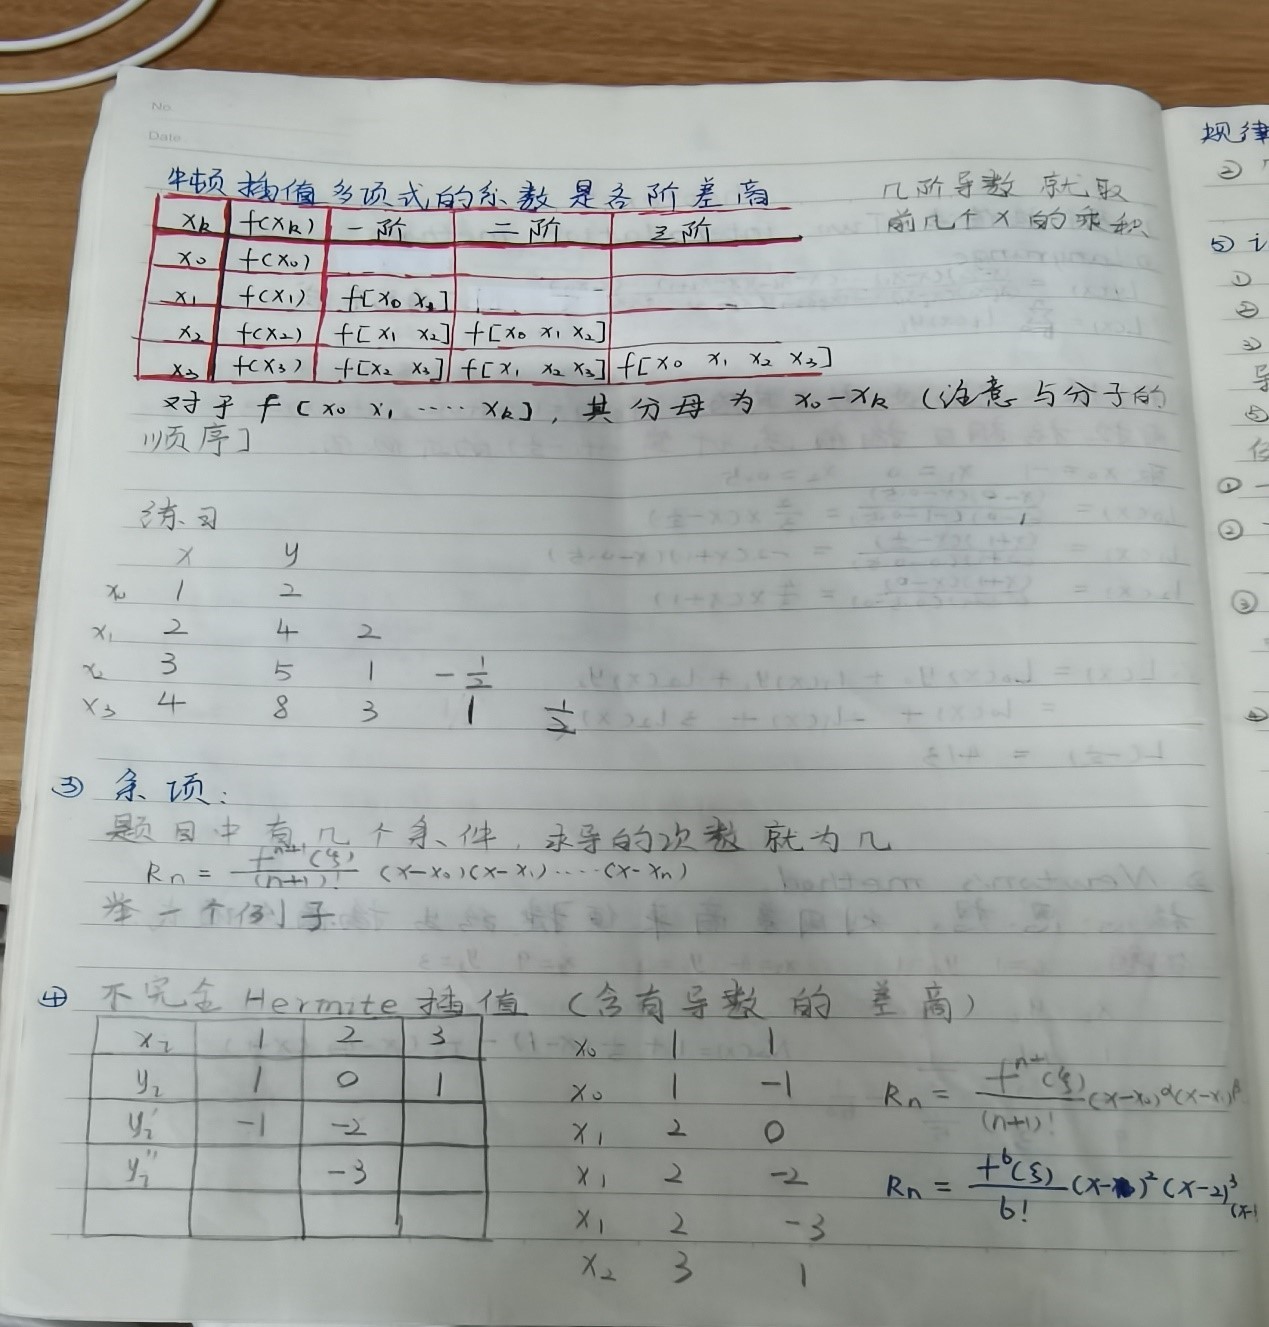 No.
Date
牛顿插值多项式的系数是各阶差商
几阶导数就取
前几个x的乘积
xk f(xk) 一阶 二阶 三阶
x0 f(x0)
x1 f(x1) f[x0 x1]
x2 f(x2) f[x1 x2] f[x0 x1 x2]
x3 f(x3) f[x2 x3] f[x1 x2 x3] f[x0 x1 x2 x3]
对于 f[x0 x1 ····· xk], 其分母为 x0-xk (注意与分子的
顺序]
练习
x y
x0 1 2
x1 2 4 2
x2 3 5 1 -1/2
x3 4 8 3 1 1/2
③ 余项:
题目中有几个条件, 求导的次数就为几
Rn = f^{n+1}(ξ)/(n+1)! (x-x0)(x-x1)····(x-xn)
举一个例子
④ 不完全Hermite插值 (含有导数的差商)
xi 1 2 3
yi 1 0 1
yi' -1 -2
yi'' -3
x0 1 1
x0 1 -1
x1 2 0
x1 2 -2
x1 2 -3
x2 3 1
Rn = f^{n+1}(ξ)/(n+1)! (x-x0)^α(x-x1)^β
Rn = f^6(ξ)/6! (x- )^2 (x-2)^3
规律
②
⑤
①
②
③
⑤
①
②
③